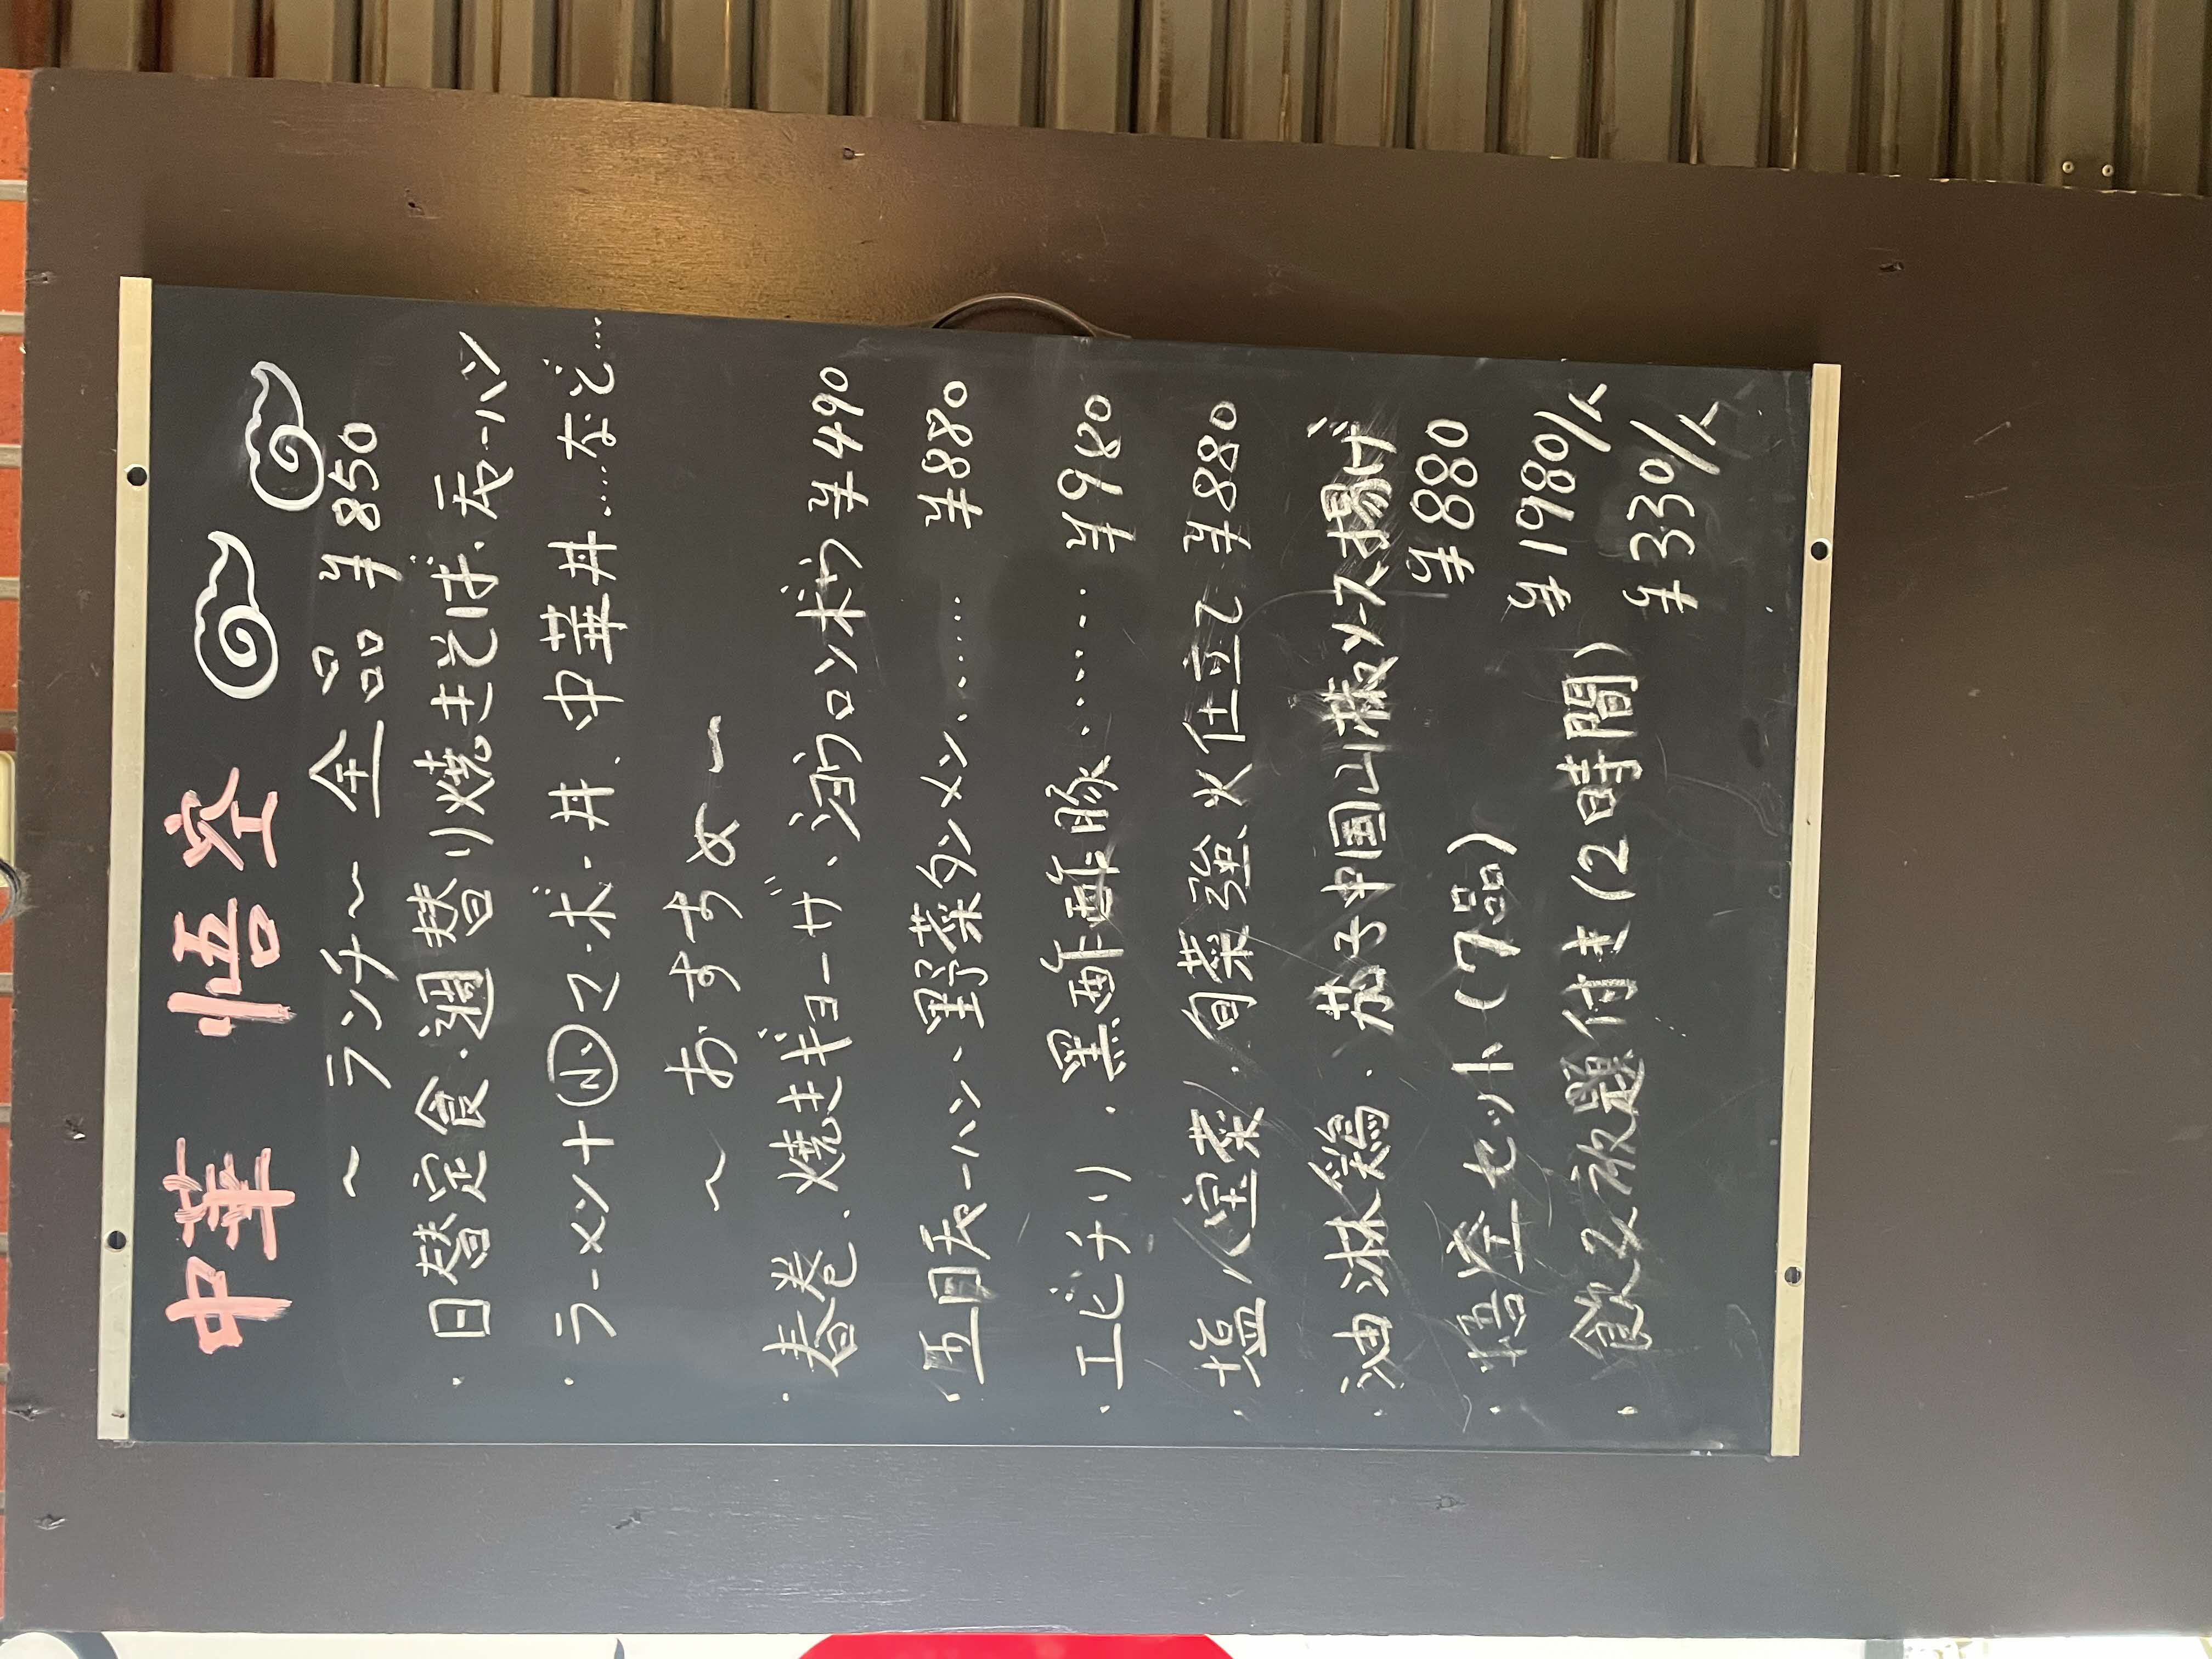 中華 悟空
～ランチ～ 全品 ¥850
・日替定食・週替り焼きそば・チャーハン
・ラーメン+㊙マーボー丼、中華丼……など…
～おすすめ～
・春巻、焼きギョーザ、ショウロンポウ ¥490
・五目チャーハン、野菜タンメン、…… ¥880
・エビチリ、黒酢酢豚…… ¥980
・塩八宝菜、旬菜強火仕立て ¥880
・油淋鶏、茄子中国山椒ソース揚げ
¥880
・悟空セット(7品) ¥1980/人
・飲み放題付き(2時間) ¥330/人